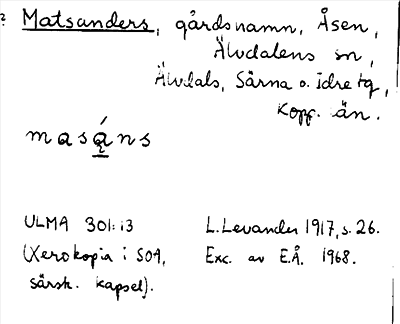 ? Matsanders, gårdsnamn, Åsen,
Älvdalens sn,
Älvdals, Särna o. Idre tg,
Kopp. län.
masą́ns
ULMA 301:13
(Xerokopia i SOA,
särsk. kapsel).
L. Levander 1917, s. 26.
Exc. av E.Å. 1968.